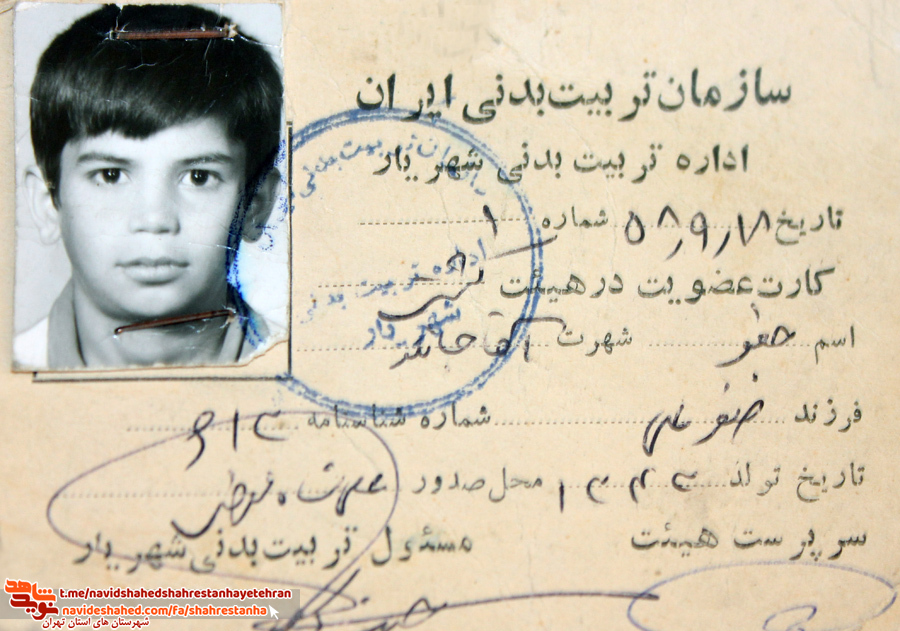 سازمان تربیت‌بدنی ایران
اداره تربیت بدنی شهریار
تاریخ ۵۸٫۹٫۱۸ شماره ۱
کارت عضویت در هیئت کشتی
اسم جعفر شهرت آقاجانلو
فرزند شماره شناسنامه ۶۱۳
تاریخ تولد ۱۳۴۳ محل صدور
سرپرست هیئت مسئول تربیت‌بدنی شهریار
اداره تربیت بدنی
شهریار
نوید شاهد
t.me/navidshahedshahrestanhayetehran
navideshahed.com/fa/shahrestanha
شهرستان های استان تهران